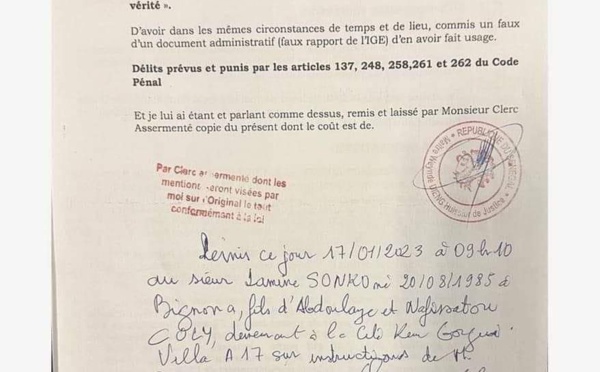 vérité ».
D'avoir dans les mêmes circonstances de temps et de lieu, commis un faux
d'un document administratif (faux rapport de l'IGE) d'en avoir fait usage.
Délits prévus et punis par les articles 137, 248, 258,261 et 262 du Code
Pénal
Et je lui ai étant et parlant comme dessus, remis et laissé par Monsieur Clerc
Assermenté copie du présent dont le coût est de.
Par Clerc assermenté dont les
mentions seront visées par
moi sur l'Original le tout
conformément à la loi
REPUBLIQUE DU SENEGAL
Huissier de Justice
Remis ce jour 17/01/2023 à 09h10
au sieur Lamine SONKO né 20/08/1985 à
Bignona, fils d'Abdoulaye et Nafissatou
COLY, demeurant à la Cité Keur Gorgui
Villa A 17 sur instructions de M.